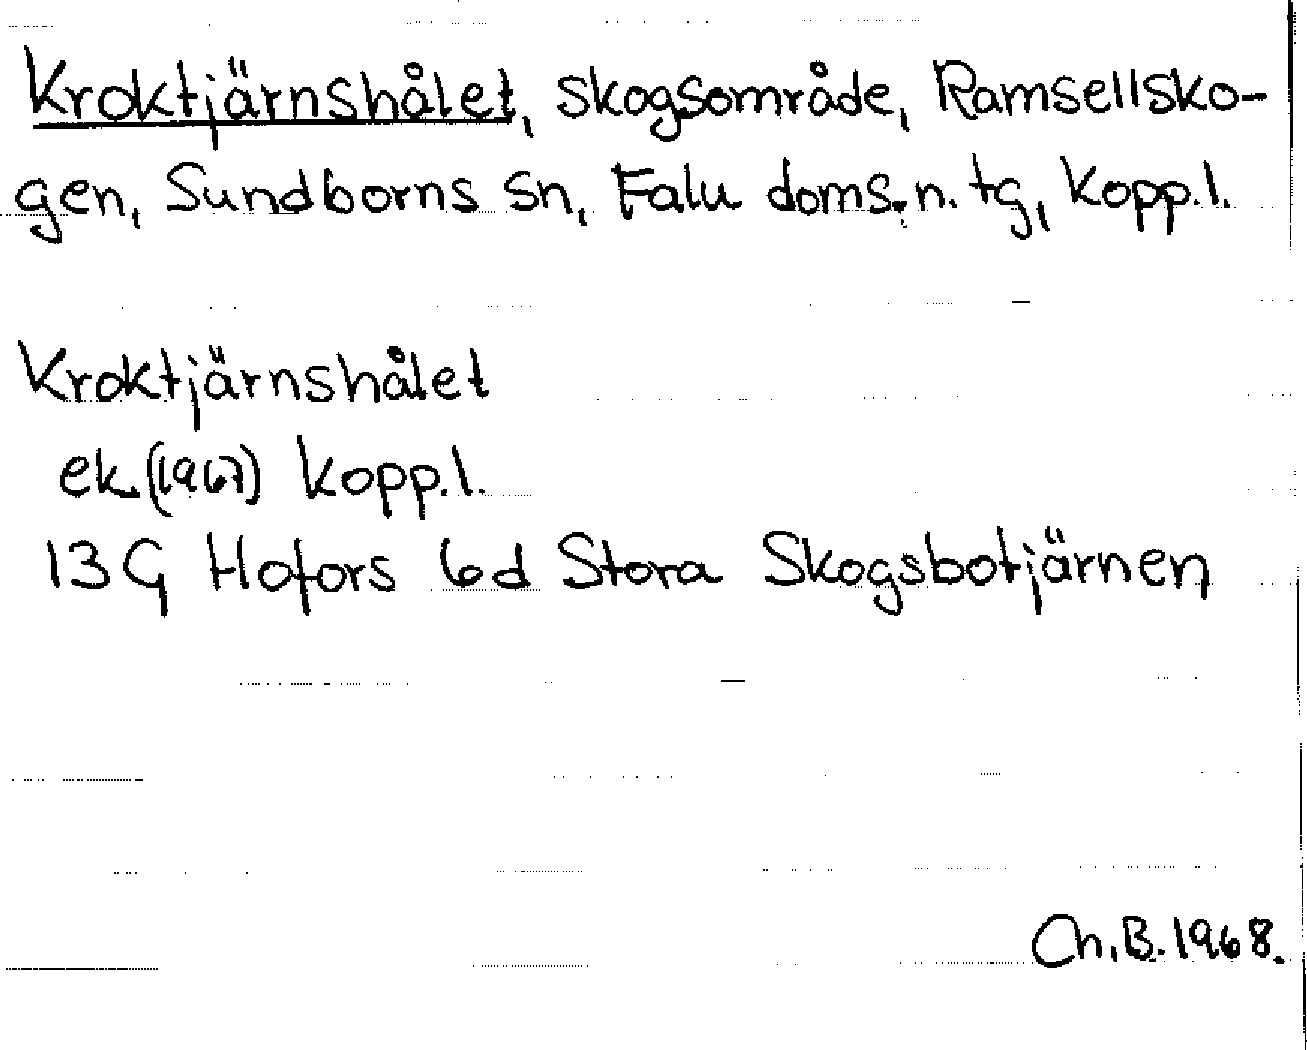 Kroktjärnshålet, skogsområde, Ramsellsko-
gen, Sundborns sn, Falu doms.n. tg, Kopp.l.
Kroktjärnshålet
ek.(1967) Kopp.l.
13G Hofors 6d Stora Skogsbotjärnen
Ch.B. 1968.